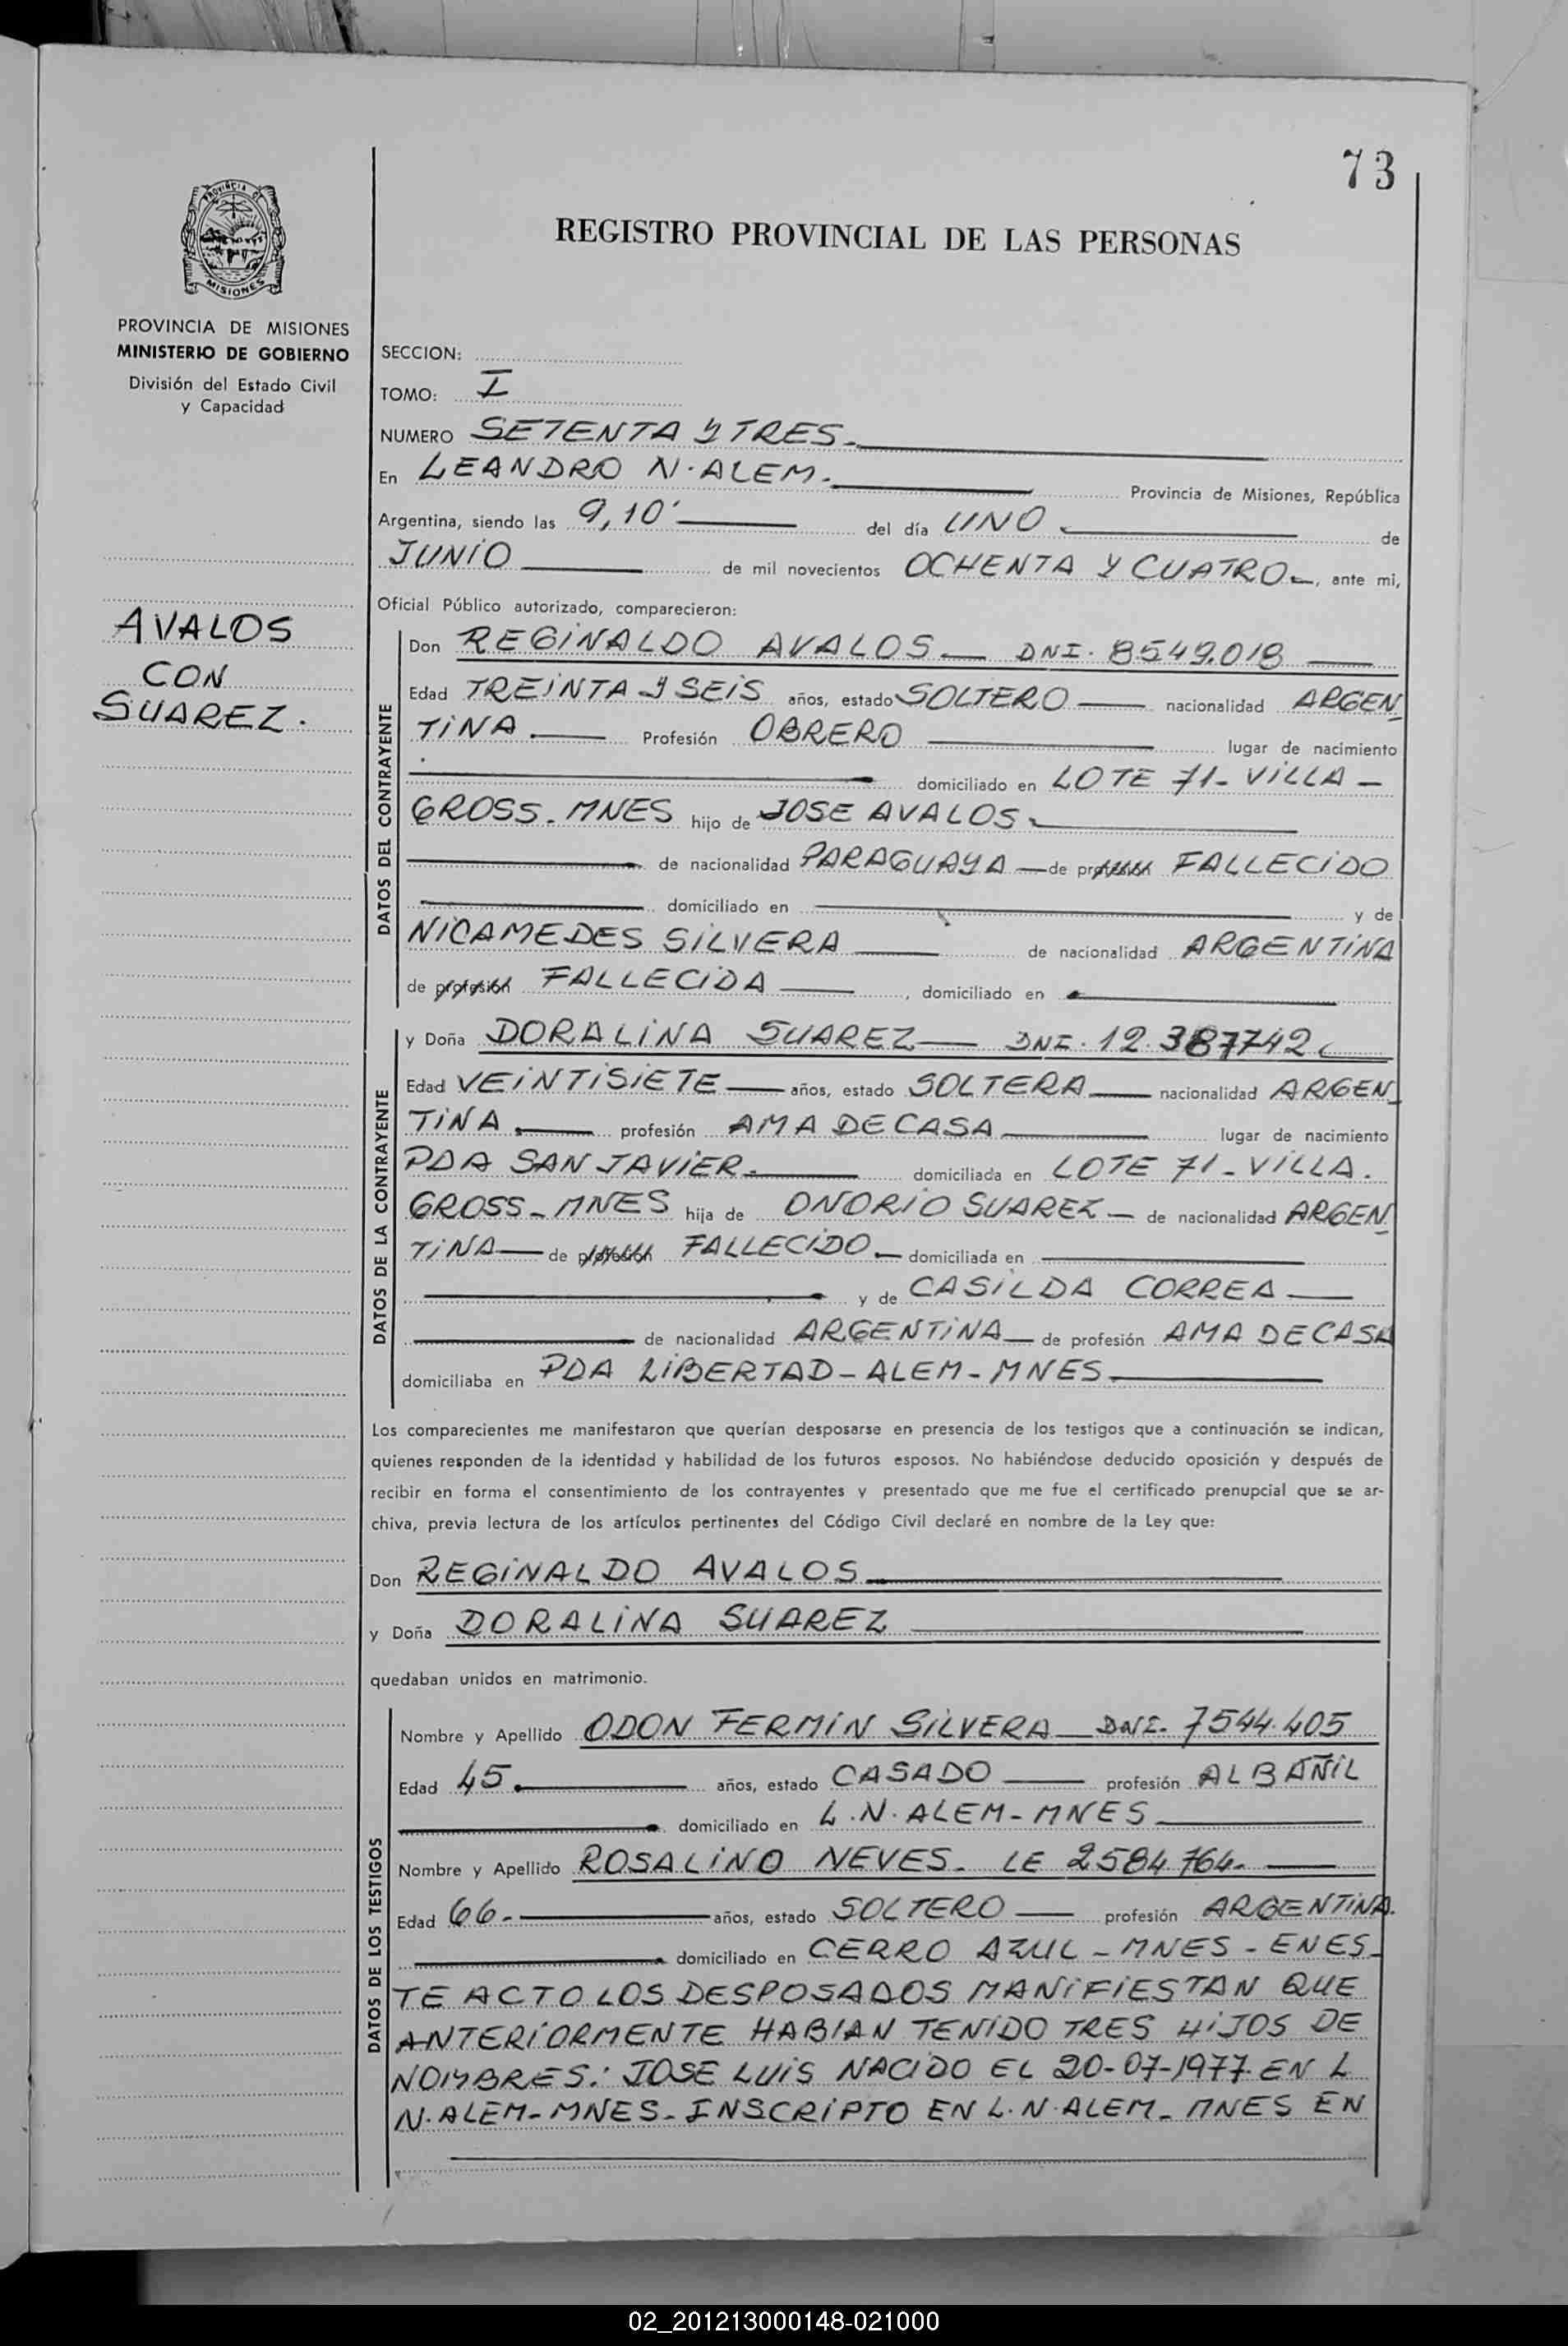 73
REGISTRO PROVINCIAL DE LAS PERSONAS
PROVINCIA DE MISIONES
PROVINCIA DE MISIONES
MINISTERIO DE GOBIERNO
División del Estado Civil
y Capacidad
AVALOS
CON
SUAREZ.
SECCION:
TOMO: I
NUMERO SETENTA Y TRES.
En LEANDRO N. ALEM. Provincia de Misiones, República
Argentina, siendo las 9,10' del día UNO de
JUNIO de mil novecientos OCHENTA Y CUATRO, ante mi,
Oficial Público autorizado, comparecieron:
DATOS DEL CONTRAYENTE
Don REGINALDO AVALOS DNI. 8549.018
Edad TREINTA Y SEIS años, estado SOLTERO nacionalidad ARGEN
TINA. Profesión OBRERO lugar de nacimiento
domiciliado en LOTE 71- VILLA -
GROSS. MNES hijo de JOSE AVALOS
de nacionalidad PARAGUAYA de profesión FALLECIDO
domiciliado en y de
NICAMEDES SILVERA de nacionalidad ARGENTINA
de profesión FALLECIDA, domiciliado en
DATOS DE LA CONTRAYENTE
y Doña DORALINA SUAREZ DNI. 12.387742
Edad VEINTISIETE años, estado SOLTERA nacionalidad ARGEN_
TINA. profesión AMA DE CASA lugar de nacimiento
PDA SAN JAVIER. domiciliada en LOTE 71 - VILLA.
GROSS - MNES hija de ONORIO SUAREZ de nacionalidad ARGEN_
TINA de profesión FALLECIDO domiciliada en
y de CASILDA CORREA
de nacionalidad ARGENTINA de profesión AMA DE CASA
domiciliaba en PDA LIBERTAD - ALEM - MNES.
Los comparecientes me manifestaron que querían desposarse en presencia de los testigos que a continuación se indican,
quienes responden de la identidad y habilidad de los futuros esposos. No habiéndose deducido oposición y después de
recibir en forma el consentimiento de los contrayentes y presentado que me fue el certificado prenupcial que se ar-
chiva, previa lectura de los artículos pertinentes del Código Civil declaré en nombre de la Ley que:
Don REGINALDO AVALOS
y Doña DORALINA SUAREZ
quedaban unidos en matrimonio.
DATOS DE LOS TESTIGOS
Nombre y Apellido ODON FERMIN SILVERA DNI. 7544.405
Edad 45. años, estado CASADO profesión ALBAÑIL
domiciliado en L.N. ALEM - MNES
Nombre y Apellido ROSALINO NEVES. LE 2584764.
Edad 66. años, estado SOLTERO profesión ARGENTINA.
domiciliado en CERRO AZUL - MNES - EN ES_
TE ACTO LOS DESPOSADOS MANIFIESTAN QUE
ANTERIORMENTE HABIAN TENIDO TRES HIJOS DE
NOMBRES: JOSE LUIS NACIDO EL 20-07-1977 EN L
N. ALEM - MNES - INSCRIPTO EN L.N. ALEM - MNES EN
02_201213000148-021000